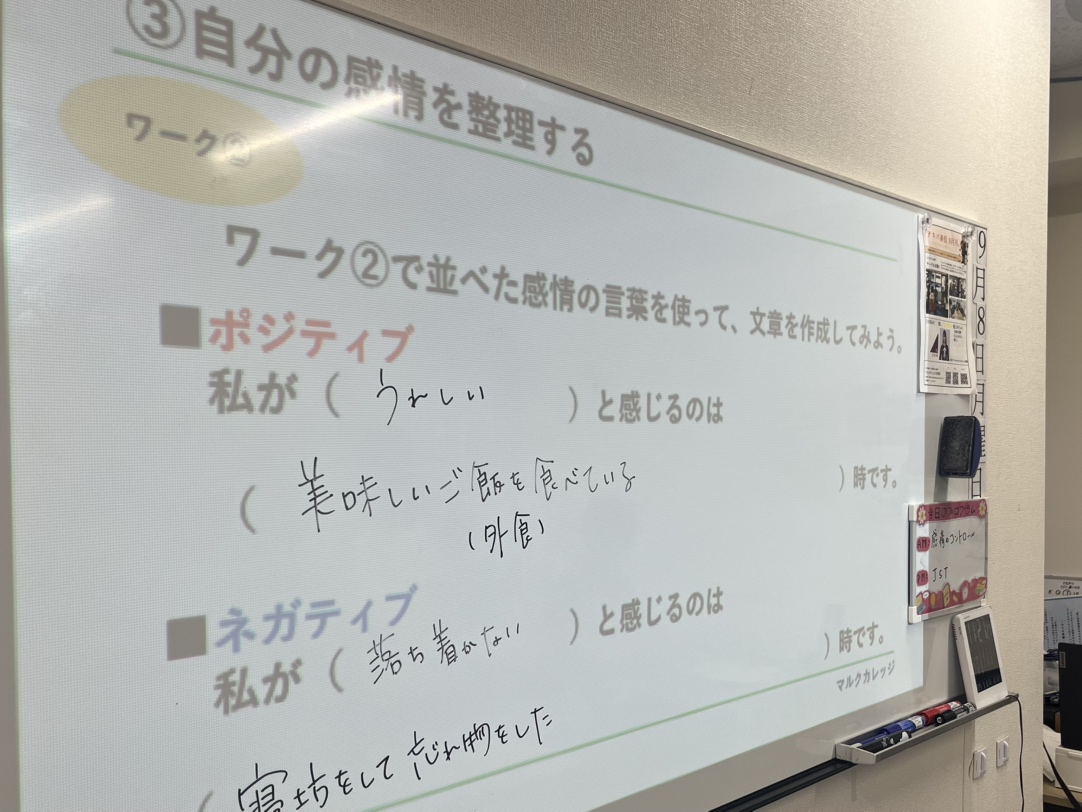 ③自分の感情を整理する
ワーク③
ワーク②で並べた感情の言葉を使って、文章を作成してみよう。
■ポジティブ
私が（ うれしい ）と感じるのは
（ 美味しいご飯を食べている ）時です。
（外食）
■ネガティブ
私が（ 落ち着かない ）と感じるのは
（ 寝坊をして忘れ物をした ）時です。
マルクカレッジ
9月8日月曜日
本日のプログラム
AM
感情のコントロール
PM
JST